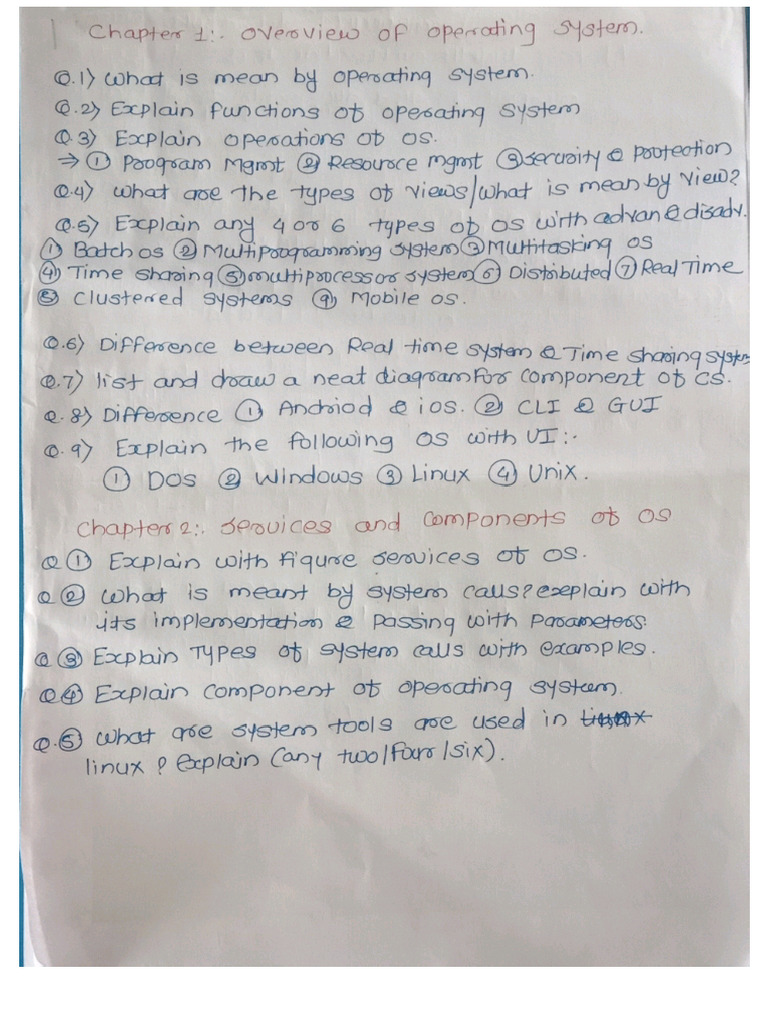 Chapter 1:. Overview of operating system.
Q.1) What is mean by operating system.
Q.2) Explain functions of operating system
Q.3) Explain operations of OS.
⇒ ① Program Mgmt ② Resource mgmt ③ security & Protection
Q.4) What are the types of views/what is mean by view?
Q.5) Explain any 4 or 6 types of OS with advan & disadv.
① Batch os ② Multiprogramming system ③ Multitasking OS
④ Time sharing ⑤ multiprocessor system ⑥ Distributed ⑦ Real Time
⑧ Clustered systems ⑨ Mobile os.
Q.6) Difference between Real time system & Time sharing system
Q.7) list and draw a neat diagram for component of CS.
Q.8) Difference ① Andriod & ios. ② CLI & GUI
Q.9) Explain the following OS with UI:-
① DOS ② Windows ③ Linux ④ Unix.
Chapter 2:. Services and Components of OS
Q ① Explain with figure services of OS.
Q ② What is meant by system calls? exeplain with
its implementation & Passing with Parameters.
Q ③ Explain Types of system calls with examples.
Q ④ Explain component of operating system.
Q.⑤ What are system tools are used in
linux ? explain (any two/four/six).